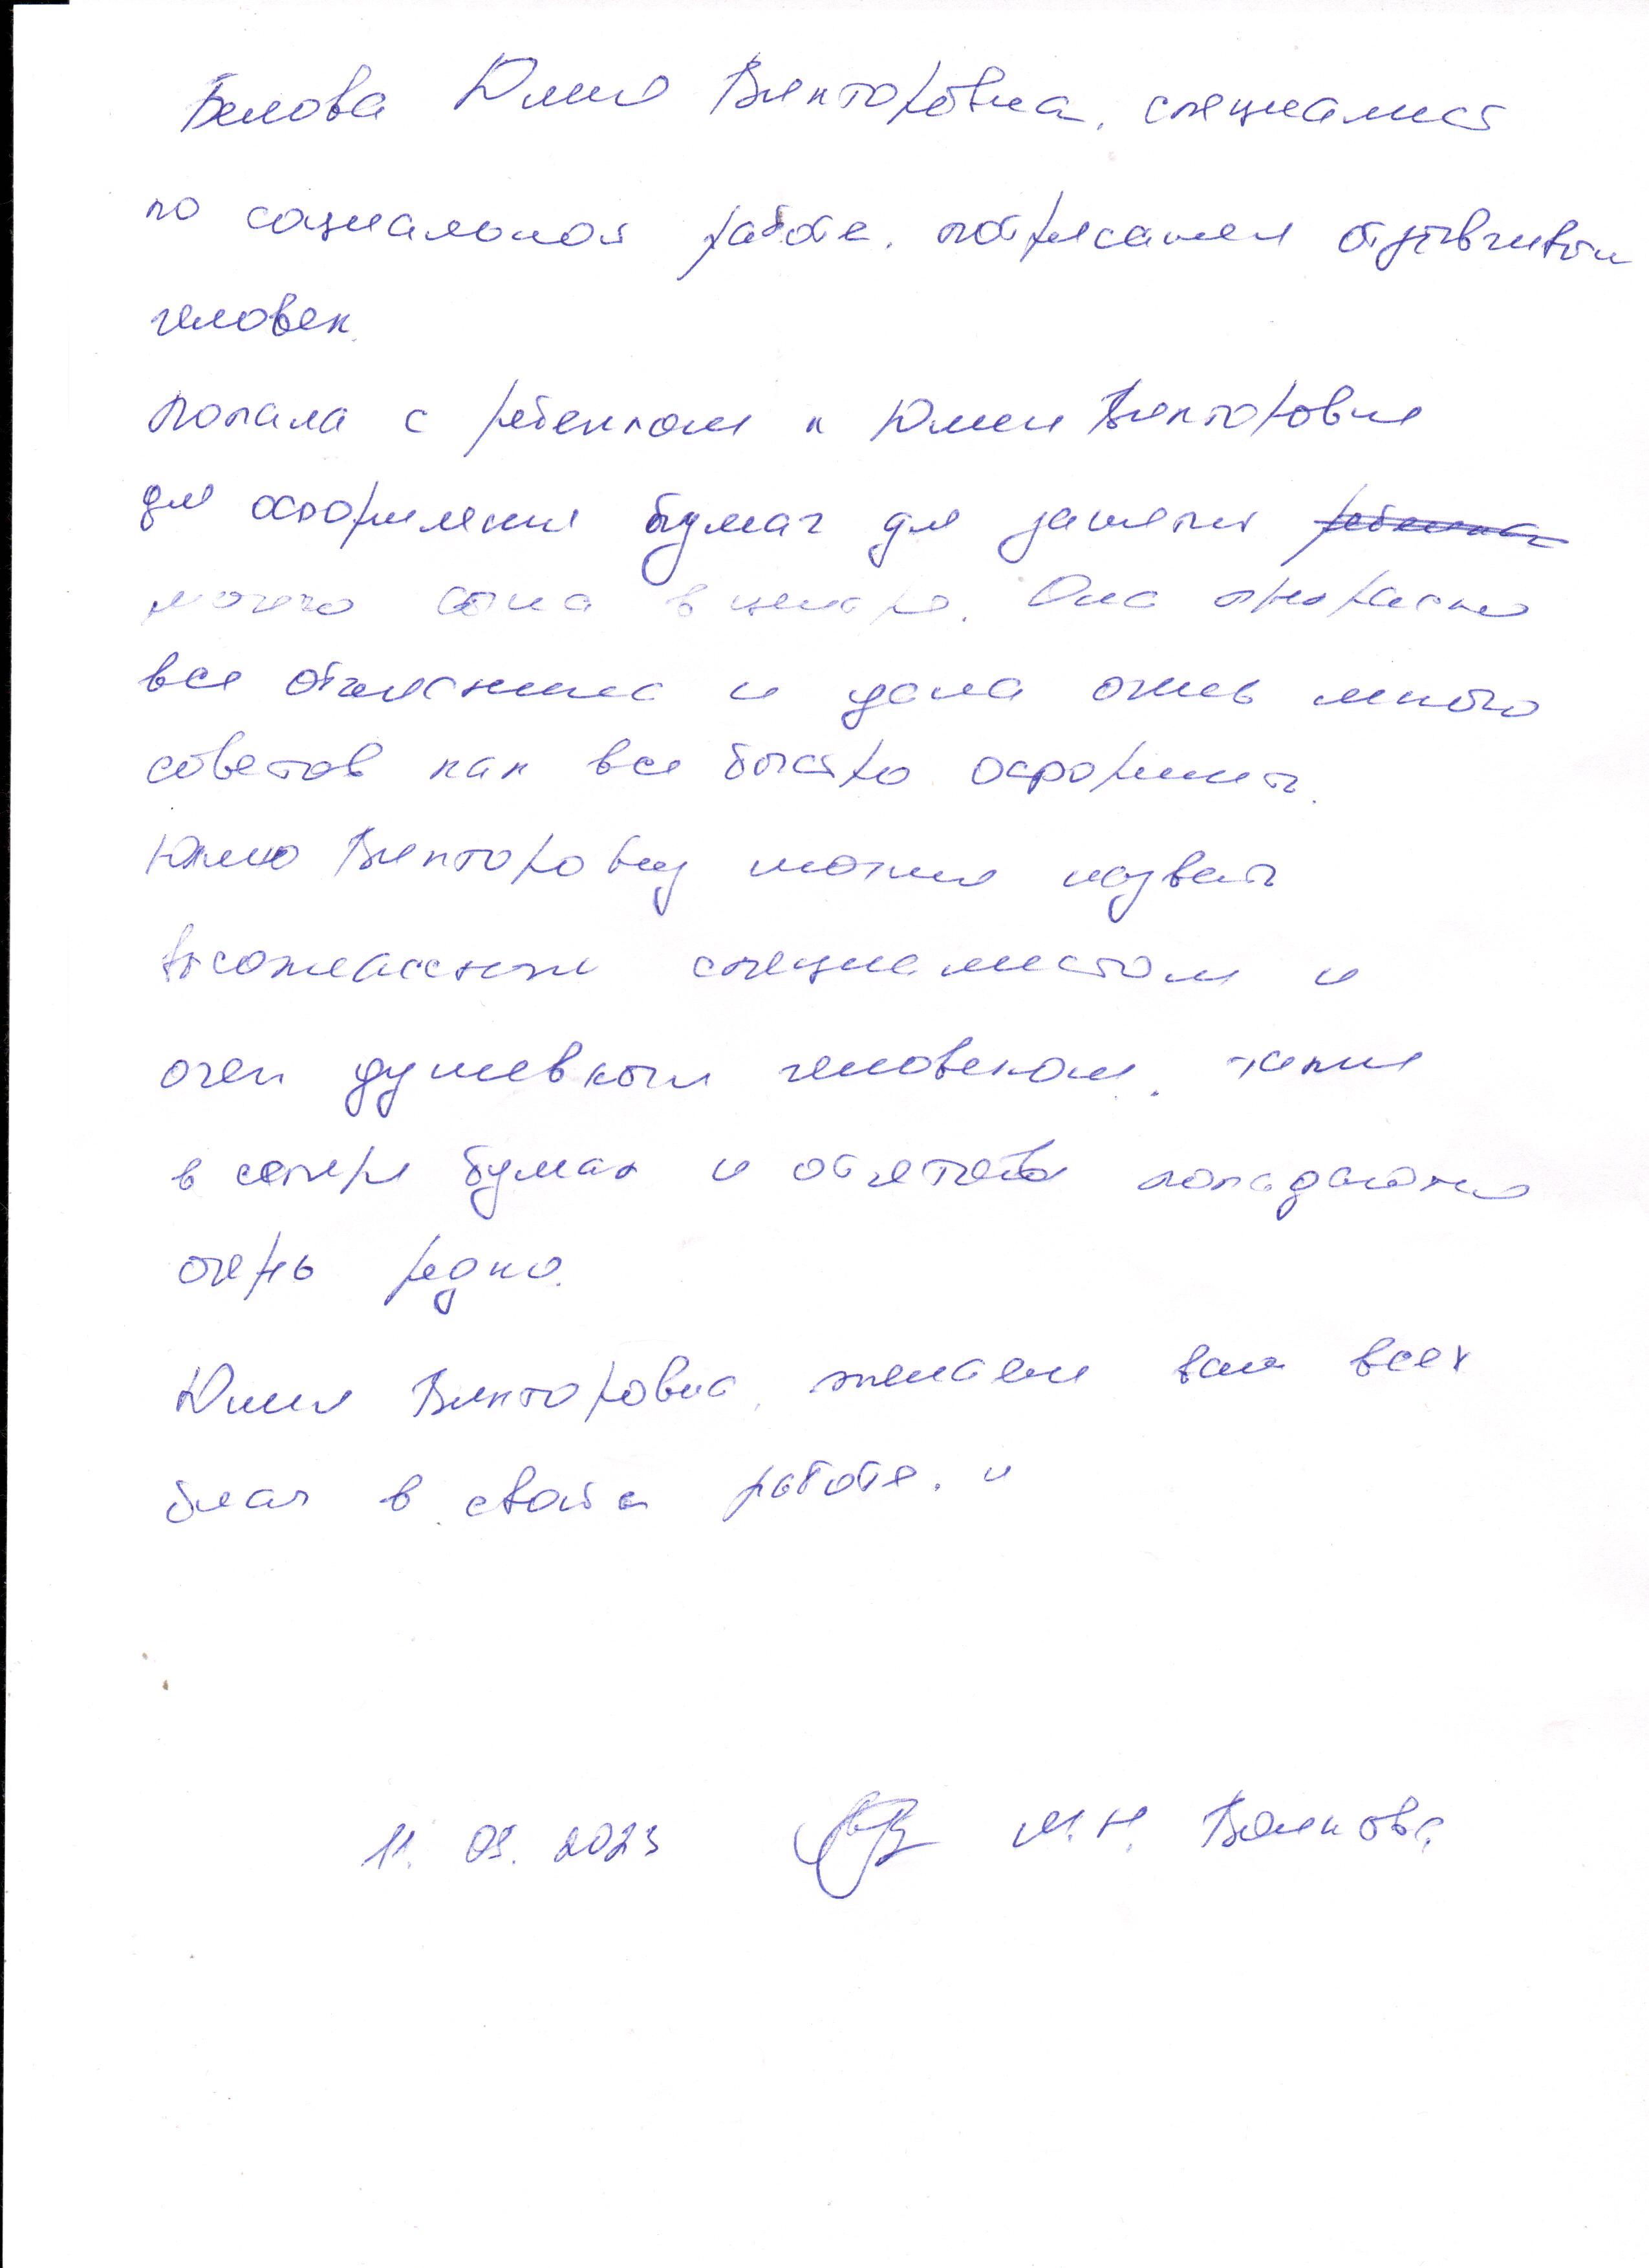 Белова Юлия Викторовна, специалист
по социальной работе, потрясающе отзывчивый
человек.
Попала с ребенком к Юлии Викторовне
для оформления бумаг для занятия ребенка
моего сына в центре. Она прекрасно
все объяснила и дала очень много
советов как все быстро оформить.
Юлию Викторовну можно назвать
высококлассным специалистом и
очень душевным человеком. такие
в сфере бумаг и отчетов попадаются
очень редко.
Юлия Викторовна, желаем вам всех
благ в своей работе. и
11. 09. 2023 М. Н. Волкова